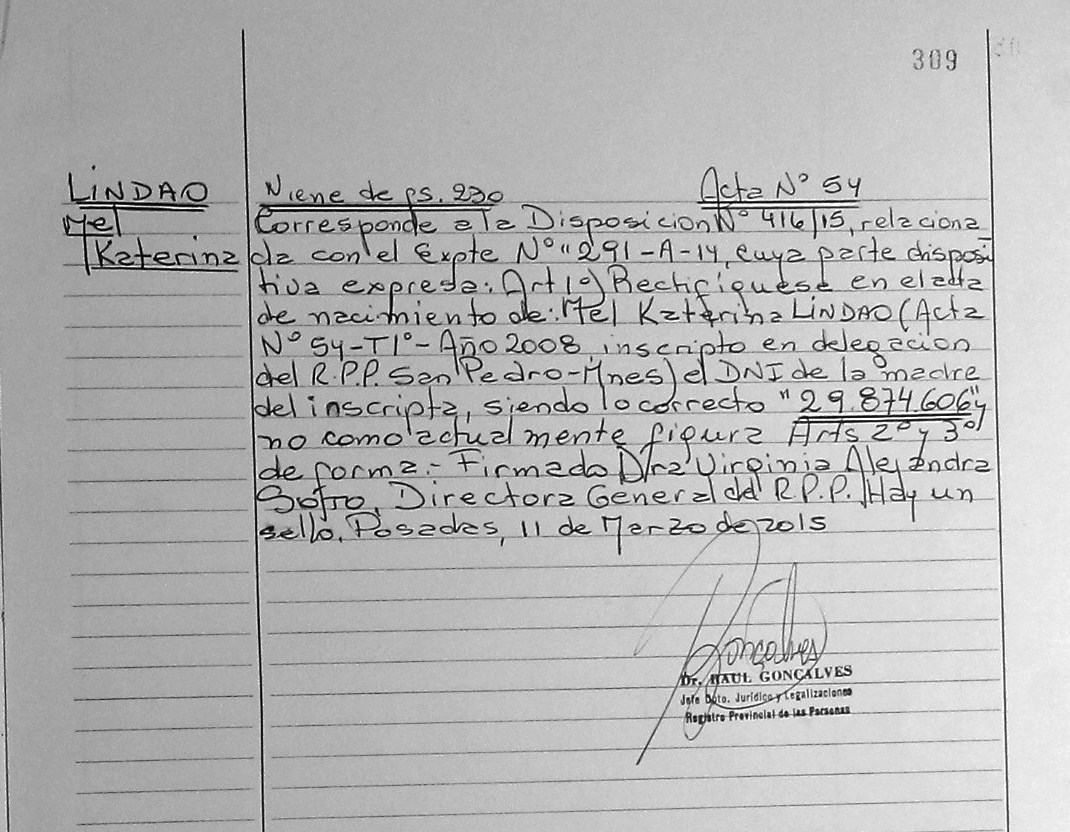 309
LINDAO
Mel
Katerina
Viene de ps. 230 Acta Nº 54
Corresponde a la Disposicion Nº 416/15, relaciona
da con el Expte Nº "291-A-14, cuya parte disposi
tiva expresa: Art 1º) Rectifiquese en el acta
de nacimiento de: Mel Katerina LINDAO (Acta
Nº 54-T1º-Año 2008, inscripto en delegacion
del R.P.P. San Pedro-Mnes) el DNI de la madre
del inscripta, siendo lo correcto "29.874.606" y
no como actualmente figura Arts 2º y 3º)
de forma.- Firmado Dra Virginia Alejandra
Sofro, Directora General del R.P.P. Hay un
sello. Posadas, 11 de Marzo de 2015
Gonçalves
Dr. RAUL GONÇALVES
Jefe Dpto. Jurídico y Legalizaciones
Registro Provincial de las Personas